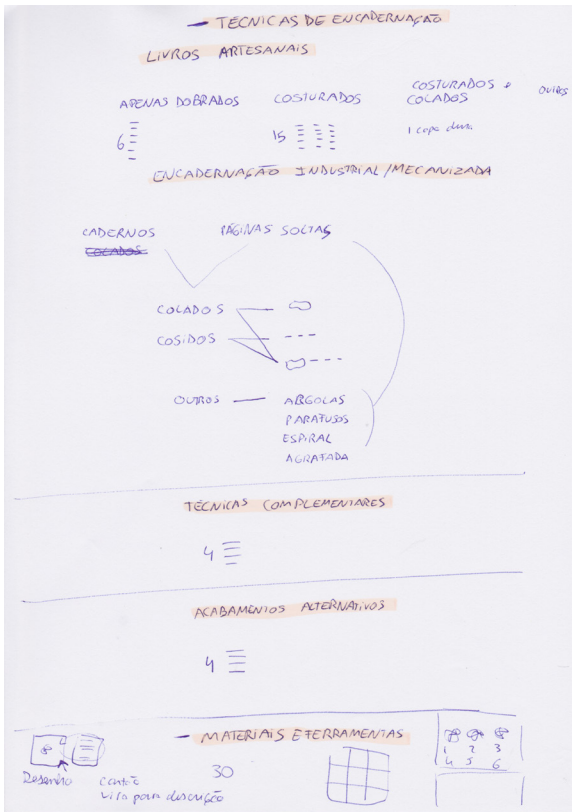 — TÉCNICAS DE ENCADERNAÇÃO
LIVROS ARTESANAIS
APENAS DOBRADOS COSTURADOS COSTURADOS + COLADOS OUTROS
6 15 1 capa dura
ENCADERNAÇÃO INDUSTRIAL/MECANIZADA
CADERNOS PÁGINAS SOLTAS
COLADOS
COLADOS
COSIDOS
OUTROS — ARGOLAS
PARAFUSOS
ESPIRAL
AGRAFADA
TÉCNICAS COMPLEMENTARES
4
ACABAMENTOS ALTERNATIVOS
4
— MATERIAIS E FERRAMENTAS
1 2 3
4 5 6
Desenho cartão 30
vira para descrição